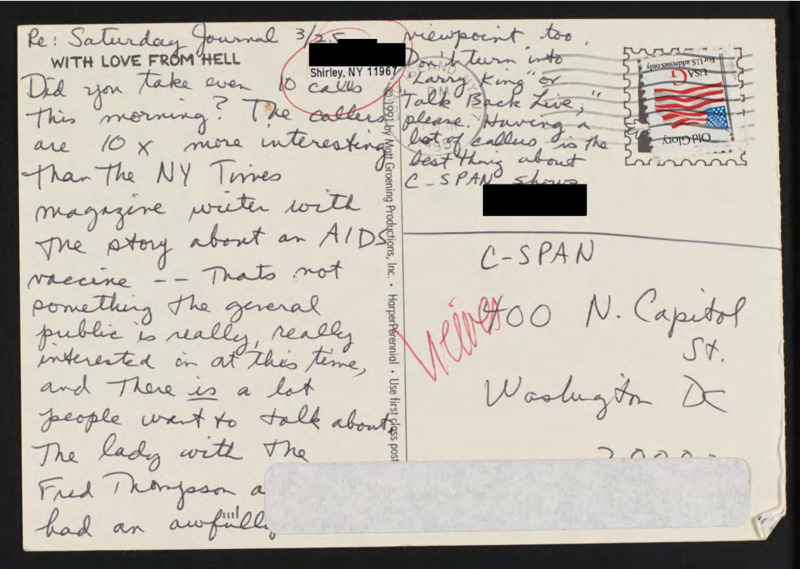 Re: Saturday Journal 3/25
WITH LOVE FROM HELL
Shirley, NY 11967
Did you take even 10 calls
this morning? The callers
are 10 x more interesting
than the NY Times
magazine writer with
the story about an AIDS
vaccine -- Thats not
something the general
public is really, really
interested in at this time,
and there is a lot
people want to talk about.
The lady with the
Fred Thompson a
had an awfully
viewpoint too.
Don't turn into
"Larry King" or
"Talk Back Live,"
please. Having a
lot of callers is the
best thing about
C-SPAN shows
1991 by Matt Groening Productions, Inc. • HarperPerennial • Use first class post
USA G
For U.S. addresses only
Old Glory
PM
C-SPAN
400 N. Capitol
St.
Washington DC